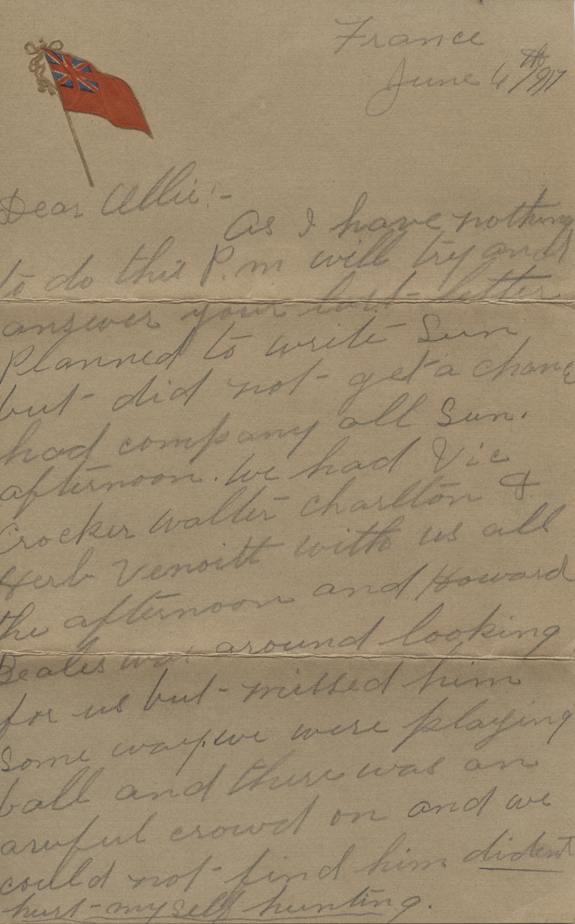 France
June 4th/917
Dear Allie:-
As I have nothing
to do this P.m will try and
answer your last letter
Planned to write Sun
but did not get a chance
had company all Sun.
afternoon. We had Vic
Crocker Walter Charlton &
Herb Venoitt with us all
the afternoon and Howard
Beales was around looking
for us but missed him
some way. we were playing
ball and there was an
awful crowd on and we
could not find him dident
hurt myself hunting.